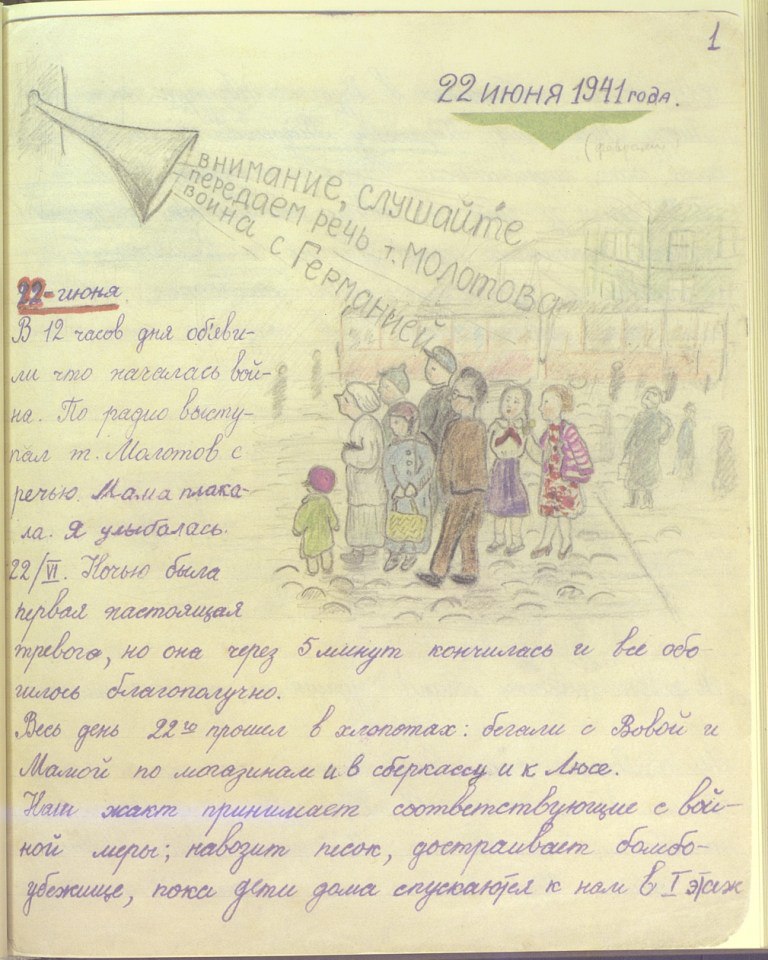 1
22 июня 1941 года.
(февраль)
внимание, слушайте
передаем речь т. Молотова
война с Германией
22-июня.
В 12 часов дня объяви-
ли что началась вой-
на. По радио высту-
пал т. Молотов с
речью. Мама плака-
ла. Я улыбалась.
22/VI. Ночью была
первая настоящая
тревога, но она через 5 минут кончилась и все обо-
шлось благополучно.
Весь день 22го прошел в хлопотах: бегали с Вовой и
Мамой по магазинам и в сберкассу и к Люсе.
Наш жакт принимает соответствующие с вой-
ной меры; навозит песок, достраивает бомбо-
убежище, пока дети дома спускаются к нам в I этаж